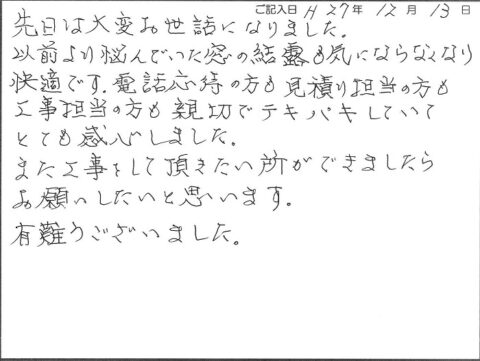 ご記入日 H 27年 12月 13日
先日は大変お世話になりました。
以前より悩んでいた窓の結露も気にならなくなり
快適です。電話応待の方も見積り担当の方も
工事担当の方も親切でテキパキしていて
とても感心しました。
また工事をして頂きたい所ができましたら
お願いしたいと思います。
有難うございました。